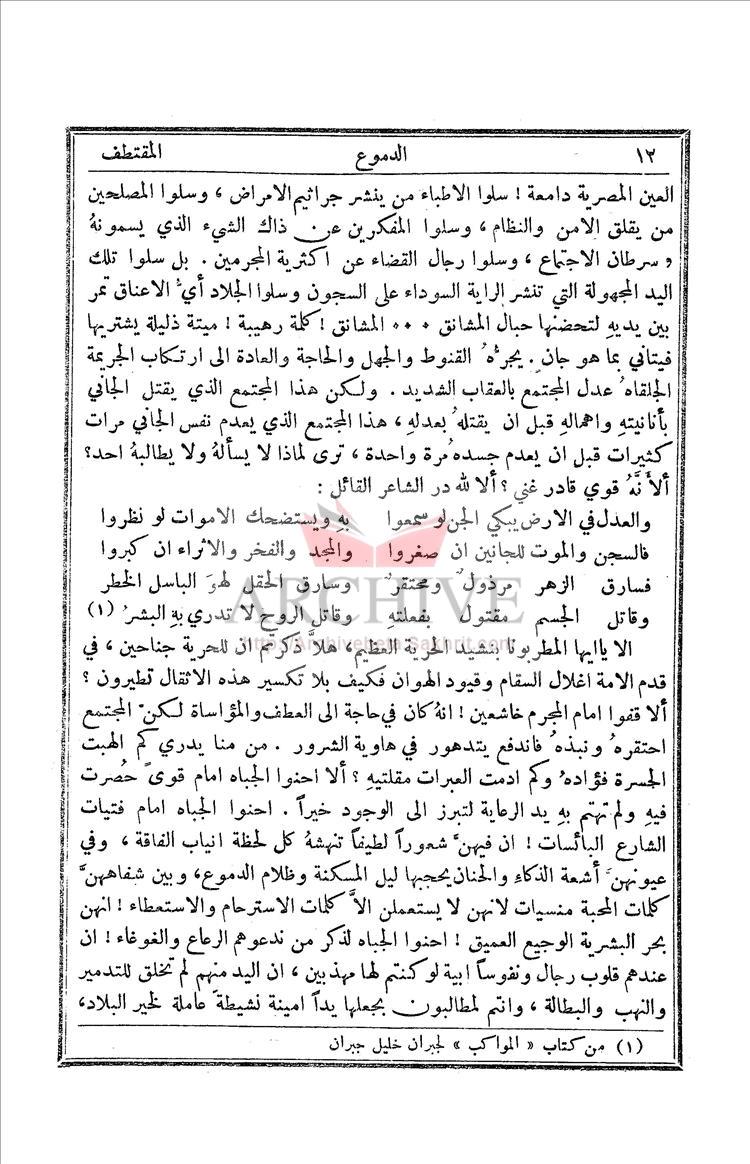 ١٢ الدموع المقتطف
العين المصرية دامعة ! سلوا الاطباء من ينشر جراثيم الامراض ، وسلوا المصلحين
من يقلق الامن والنظام ، وسلوا المفكرين عن ذاك الشيء الذي يسمونهُ
« سرطان الاجتماع ، وسلوا رجال القضاء عن اكثرية المجرمين . بل سلوا تلك
اليد المجهولة التي تنشر الراية السوداء على السجون وسلوا الجلاد أيُّ الاعناق تمر
بين يديهِ لتحضنها حبال المشانق ٠٠٠ المشانق ! كلمة رهيبة ! ميتة ذليلة يشتريها
فيتاني بما هو جانٍ . يجرُّهُ القنوط والجهل والحاجة والعادة الى ارتكاب الجريمة
عدل المجتمع بالعقاب الشديد . ولكن هذا المجتمع الذي يقتل الجاني
بأنانيتهِ واهمالهِ قبل ان يقتلهُ بعدلهِ ، هذا المجتمع الذي يعدم نفس الجاني مرات
كثيرات قبل ان يعدم جسدهُ مرة واحدة ، ترى لماذا لا يسألهُ ولا يطالبهُ احد؟
ألأَنَّهُ قوي قادر غني ؟ ألا لله در الشاعر القائل :
والعدل في الارض يبكي الجن لو سمعوا بهِ ويستضحك الاموات لو نظروا
فالسجن والموت للجانين ان صغروا والمجد والفخر والاثراء ان كبروا
فسارق الزهر مرذولٌ ومحتقرٌ وسارق الحقل لهوَ الباسل الخطر
وقاتل الجسم مقتول بفعلتهِ وقاتل الروح لا تدري بهِ البشرُ (١)
ARCHIVE
http://Archivebeta.Sakhrit.com
الا ياايها المطربونا بنشيد الحرية العظيم، هلاَّ ذكرتم ان للحرية جناحين ، في
قدم الامة اغلال السقام وقيود الهوان فكيف بلا تكسير هذه الاثقال تطيرون ؟
ألا قفوا امام المجرم خاشعين ! انهُ كان في حاجة الى العطف والمؤاساة لكنّ المجتمع
احتقرهُ ونبذهُ فاندفع يتدهور في هاوية الشرور . من منا يدري كم الهبت
الحسرة فؤادهُ وكم ادمت العبرات مقلتيهِ ؟ ألا احنوا الجباه امام قوىً حُصرت
فيهِ ولم تهتم بهِ يد الرعاية لتبرز الى الوجود خيراً . احنوا الجباه امام فتيات
الشارع البائسات ! ان فيهنَّ شعوراً لطيفاً تنهشهُ كل لحظة انياب الفاقة ، وفي
عيونهنَّ أشعة الذكاءِ والحنان يحجبها ليل المسكنة وظلام الدموع ، وبين شفاههنَّ
كلمات المحبة منسيات لانهن لا يستعملن الاَّ كلمات الاسترحام والاستعطاء ! انهن
بحر البشرية الوجيع العميق ! احنوا الجباه لذكر من ندعوهم الرعاع والغوغاء ! ان
عندهم قلوب رجال ونفوساً ابية لو كنتم لها مهذبين ، ان اليد منهم لم تخلق للتدمير
والنهب والبطالة ، وانتم لمطالبون بجعلها يداً امينة نشيطة عاملة لخير البلاد،
(١) من كتاب « المواكب » لجبران خليل جبران